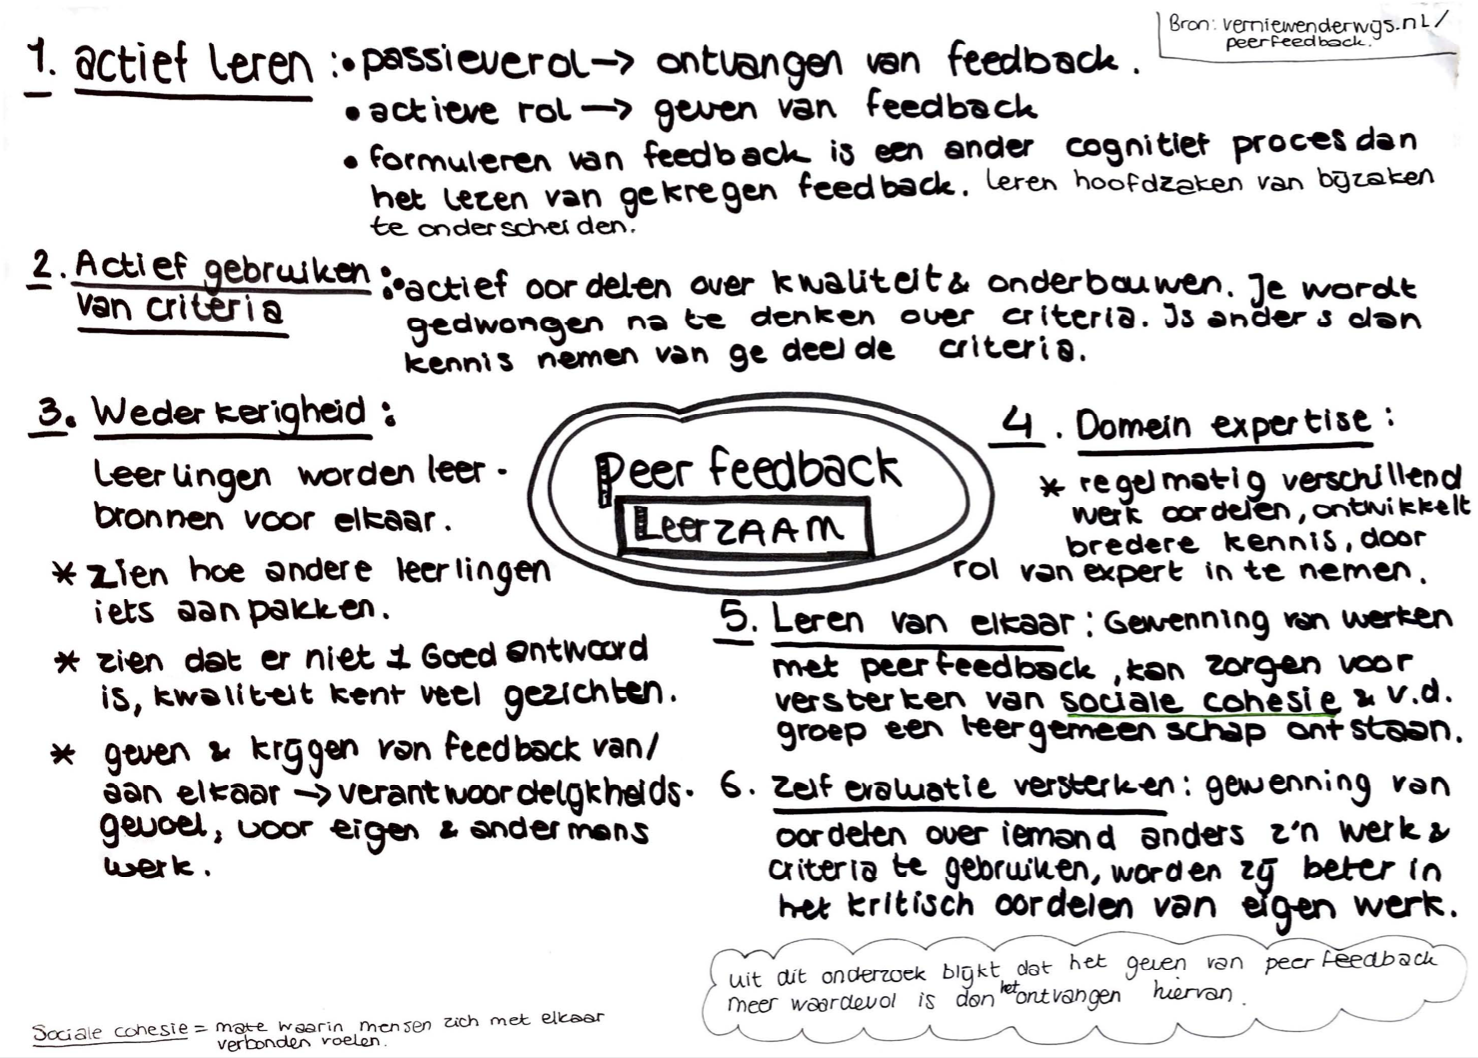 Bron: verniewenderwijs.nl/
peerfeedback.
1. actief leren : • passieve rol → ontvangen van feedback.
• actieve rol → geven van feedback
• formuleren van feedback is een ander cognitief proces dan
het lezen van gekregen feedback. Leren hoofdzaken van bijzaken
te onderscheiden.
2. Actief gebruiken : • actief oordelen over kwaliteit & onderbouwen. Je wordt
van criteria
gedwongen na te denken over criteria. Is anders dan
kennis nemen van gedeelde criteria.
3. Wederkerigheid :
Leerlingen worden leer-
bronnen voor elkaar.
* zien hoe andere leerlingen
iets aanpakken.
* zien dat er niet 1 Goed antwoord
is, kwaliteit kent veel gezichten.
* geven & krijgen van feedback van/
aan elkaar → verantwoordelijkheids-
gevoel, voor eigen & andermans
werk.
Peer feedback
LeerZAAM
4. Domein expertise :
* regelmatig verschillend
werk oordelen, ontwikkelt
bredere kennis, door
rol van expert in te nemen.
5. Leren van elkaar : Gewenning van werken
met peerfeedback, kan zorgen voor
versterken van sociale cohesie & v.d.
groep een leergemeenschap ontstaan.
6. Zelf evaluatie versterken : gewenning van
oordelen over iemand anders z'n werk &
criteria te gebruiken, worden zij beter in
het kritisch oordelen van eigen werk.
uit dit onderzoek blijkt dat het geven van peerfeedback
meer waardevol is dan het ontvangen hiervan.
Sociale cohesie = mate waarin mensen zich met elkaar
verbonden voelen.